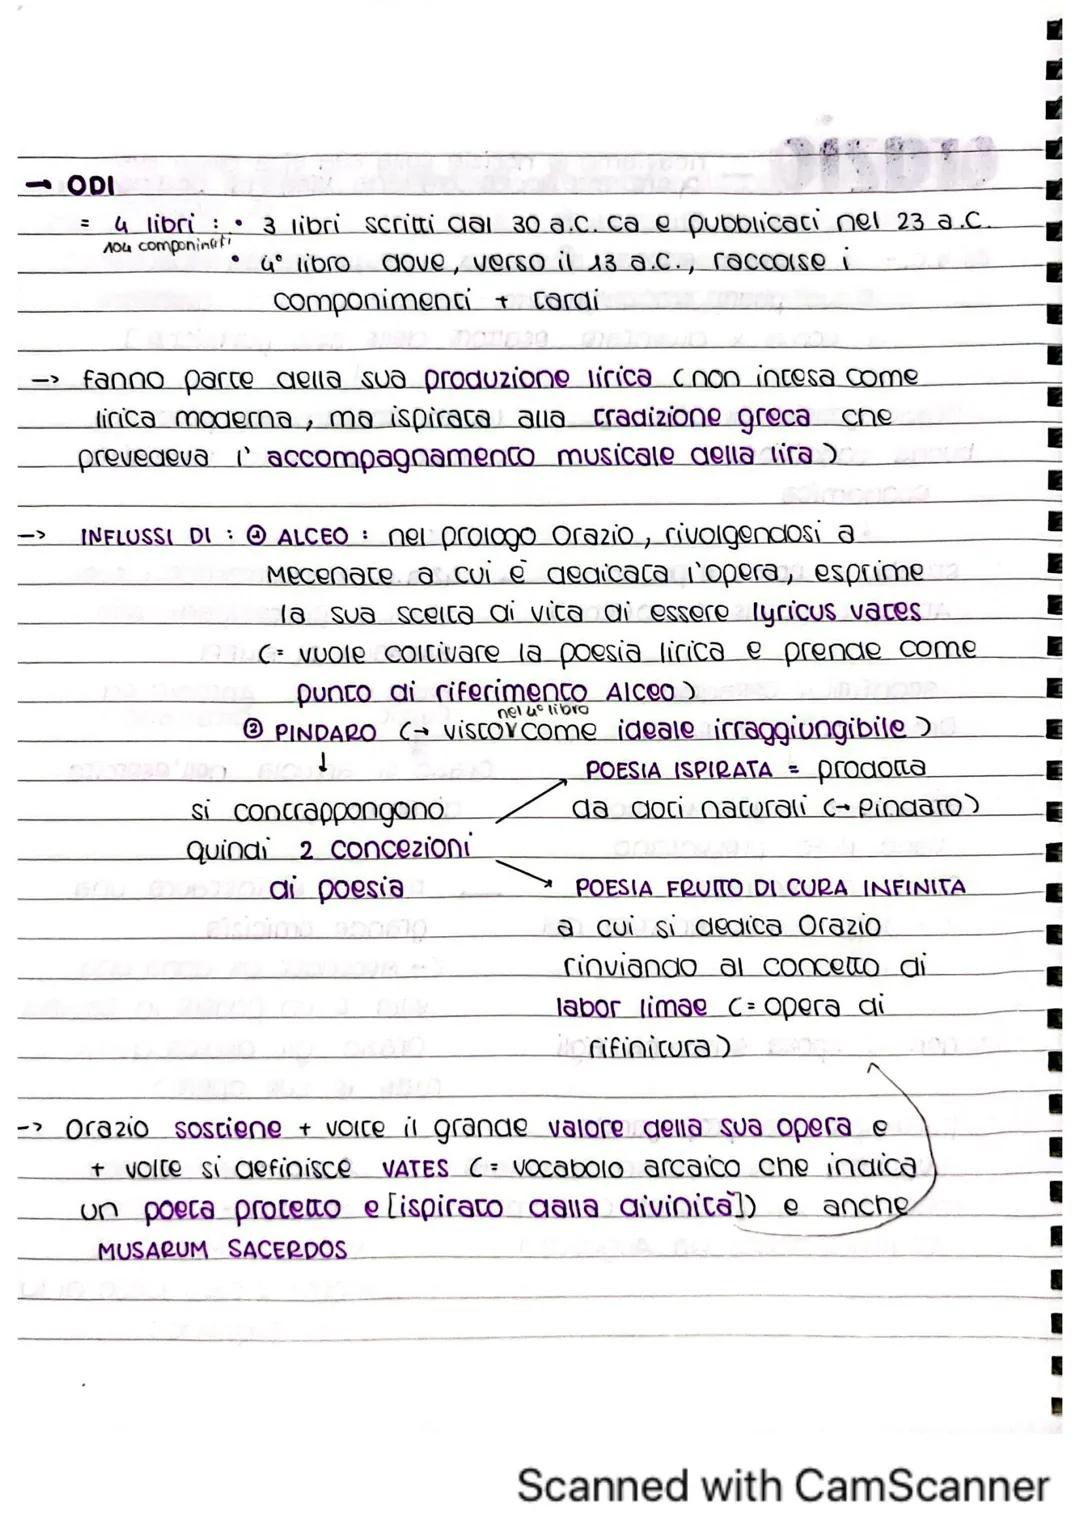 → ODI
= 4 libri : • 3 libri scritti dal 30 a.C. ca e pubblicati nel 23 a.C.
104 componimenti
• 4° libro dove, verso il 13 a.C., raccolse i
componimenti + tardi
-> fanno parte della sua produzione lirica (non intesa come
lirica moderna, ma ispirata alla tradizione greca che
prevedeva l'accompagnamento musicale della lira)
-> INFLUSSI DI : ① ALCEO : nel prologo Orazio, rivolgendosi a
Mecenate a cui è dedicata l'opera, esprime
la sua scelta di vita di essere lyricus vates
(= vuole coltivare la poesia lirica e prende come
punto di riferimento Alceo)
nel 4° libro
② PINDARO (→ visto come ideale irraggiungibile)
↓
POESIA ISPIRATA = prodotta
si contrappongono da doti naturali (→ Pindaro)
quindi 2 concezioni
di poesia POESIA FRUTTO DI CURA INFINITA
a cui si dedica Orazio
rinviando al concetto di
labor limae (= opera di
rifinitura)
-> Orazio sostiene + volte il grande valore della sua opera e
+ volte si definisce VATES (= vocabolo arcaico che indica
un poeta protetto e [ispirato dalla divinità]) e anche
MUSARUM SACERDOS
Scanned with CamScanner